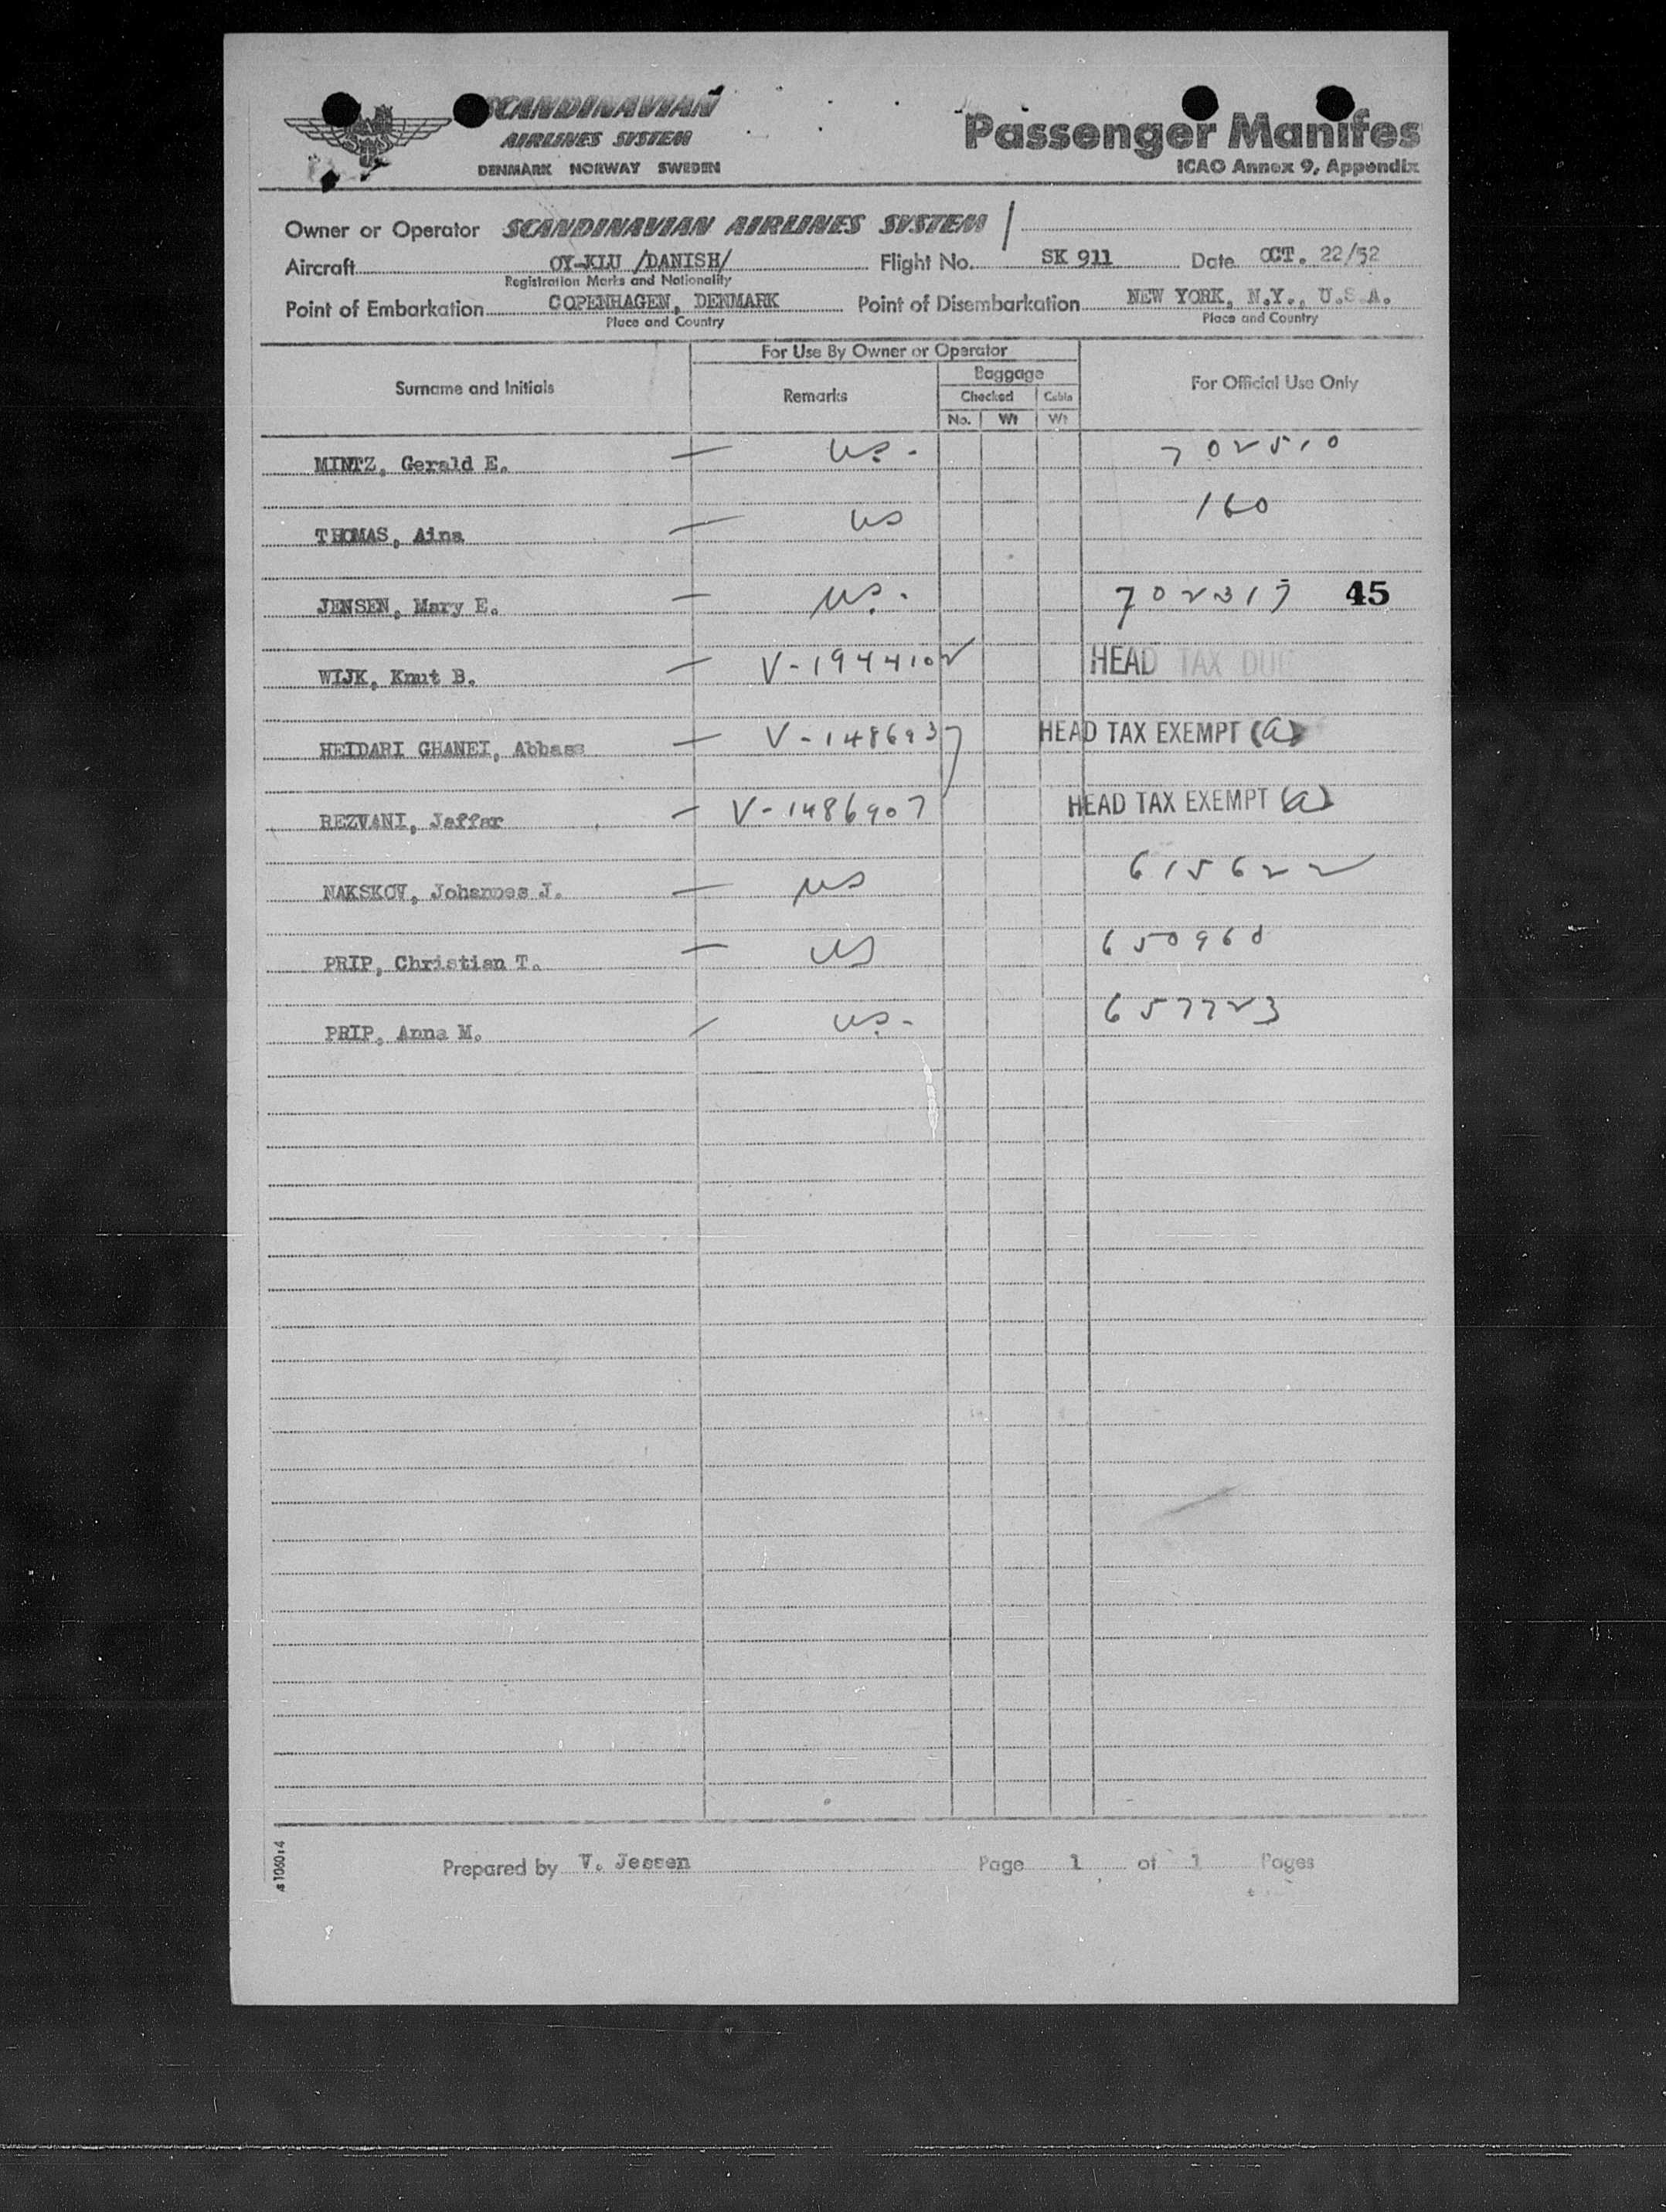 SCANDINAVIAN
AIRLINES SYSTEM
DENMARK NORWAY SWEDEN
Passenger Manifes
ICAO Annex 9, Appendix
Owner or Operator SCANDINAVIAN AIRLINES SYSTEM
Aircraft OY-KLU /DANISH/ Flight No. SK 911 Date OCT. 22/52
Registration Marks and Nationality
Point of Embarkation COPENHAGEN, DENMARK Point of Disembarkation NEW YORK, N.Y., U.S.A.
Place and Country Place and Country
For Use By Owner or Operator
Surname and Initials Remarks Baggage For Official Use Only
Checked Cabin
No. Wt Wt
MINTZ, Gerald E. — US. 702510
THOMAS, Aina — US 160
JENSEN, Mary E. — US. 702317 45
WIJK, Knut B. — V-1944102 HEAD TAX DUE
HEIDARI GHANEI, Abbass — V-1486937 HEAD TAX EXEMPT (a)
REZVANI, Jaffar — V-1486907 HEAD TAX EXEMPT (a)
NAKSKOV, Johannes J. — US 615622
PRIP, Christian T. — US 650960
PRIP, Anna M. — US. 657723
Prepared by V. Jessen Page 1 of 1 Pages